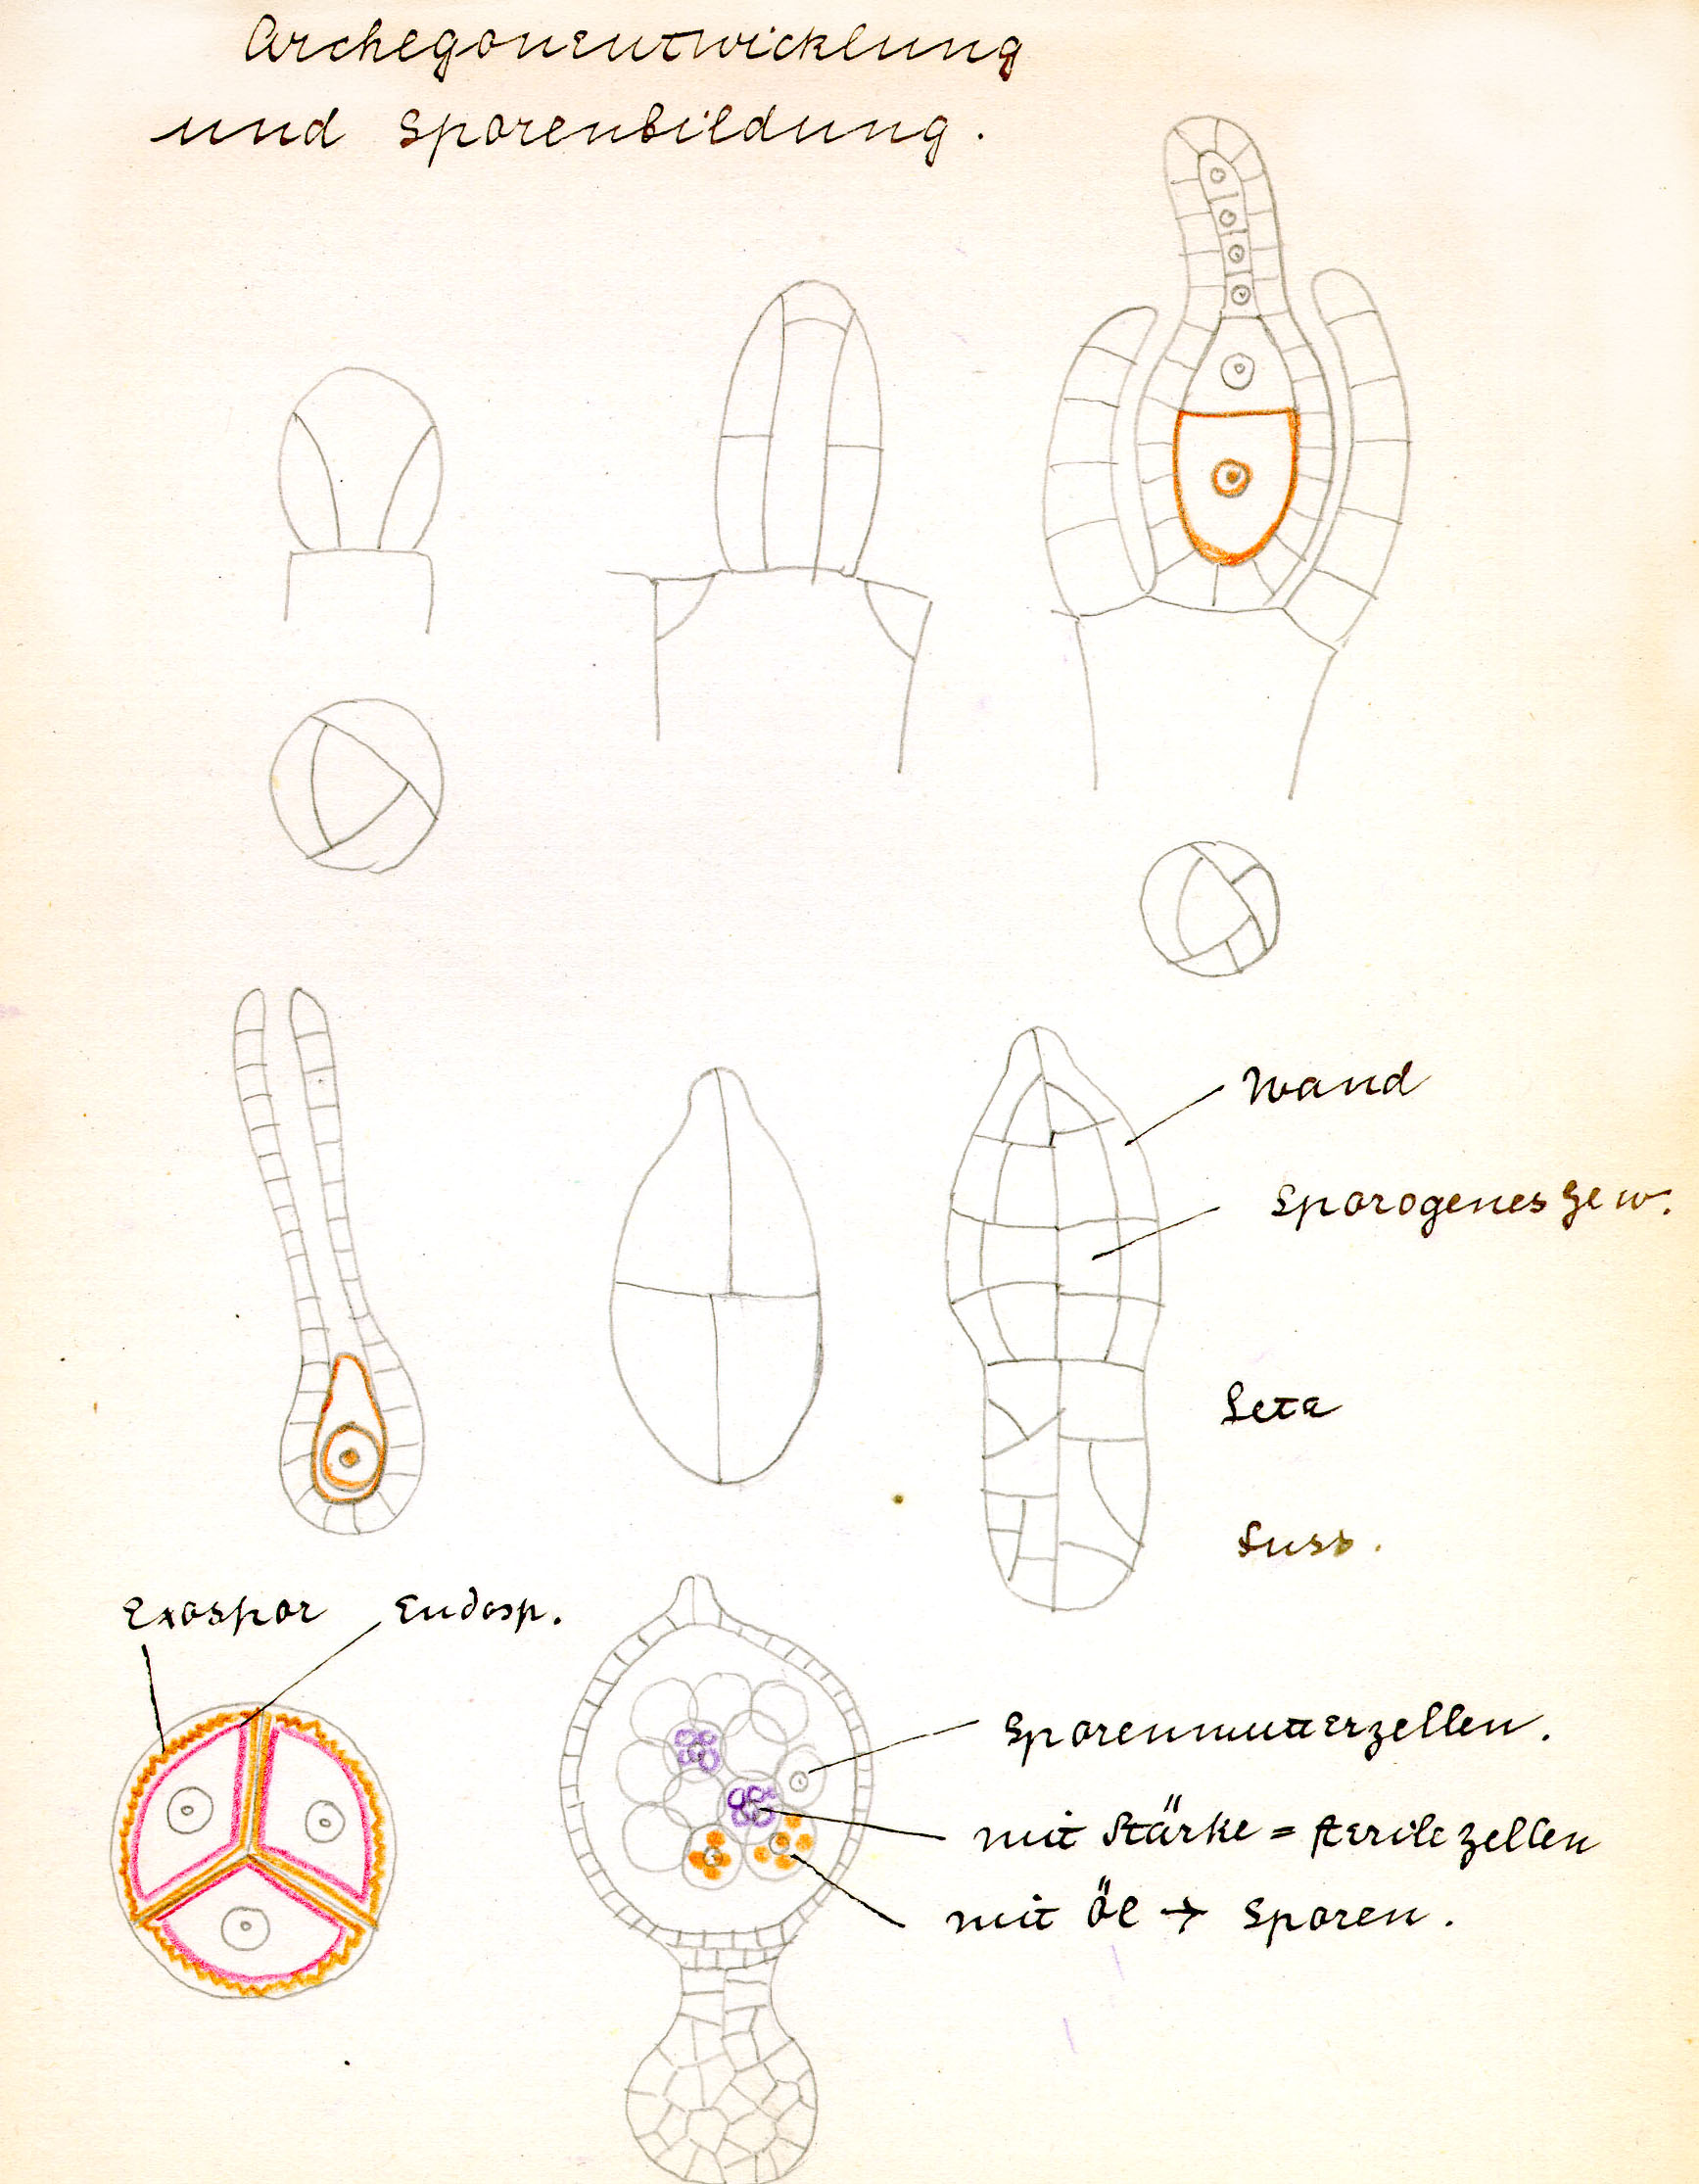 Archegonentwicklung
und Sporenbildung.
Wand
Sporogenes Gew.
Seta
Fuss.
Exospor Endosp.
Sporenmutterzellen.
mit Stärke = sterile Zellen
mit Öl → Sporen.